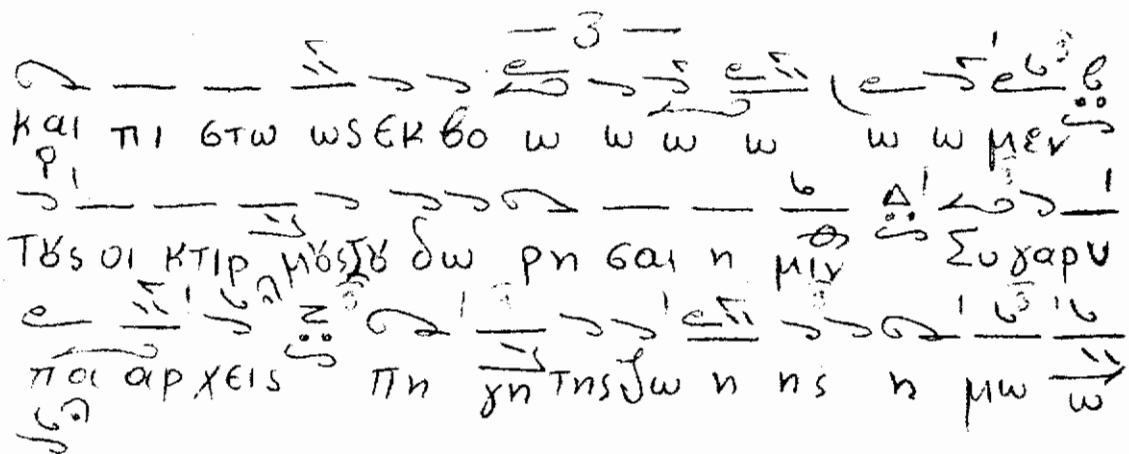 — 3 —
και πι στω ως εκ βο ω ω ω ω ω ω μεν
τȣς οι κτιρ μȣς σȣ δω ρη σαι η μιν Συ γαρ υ
πα αρ χεις πη γη της ζω η ης η μω ω